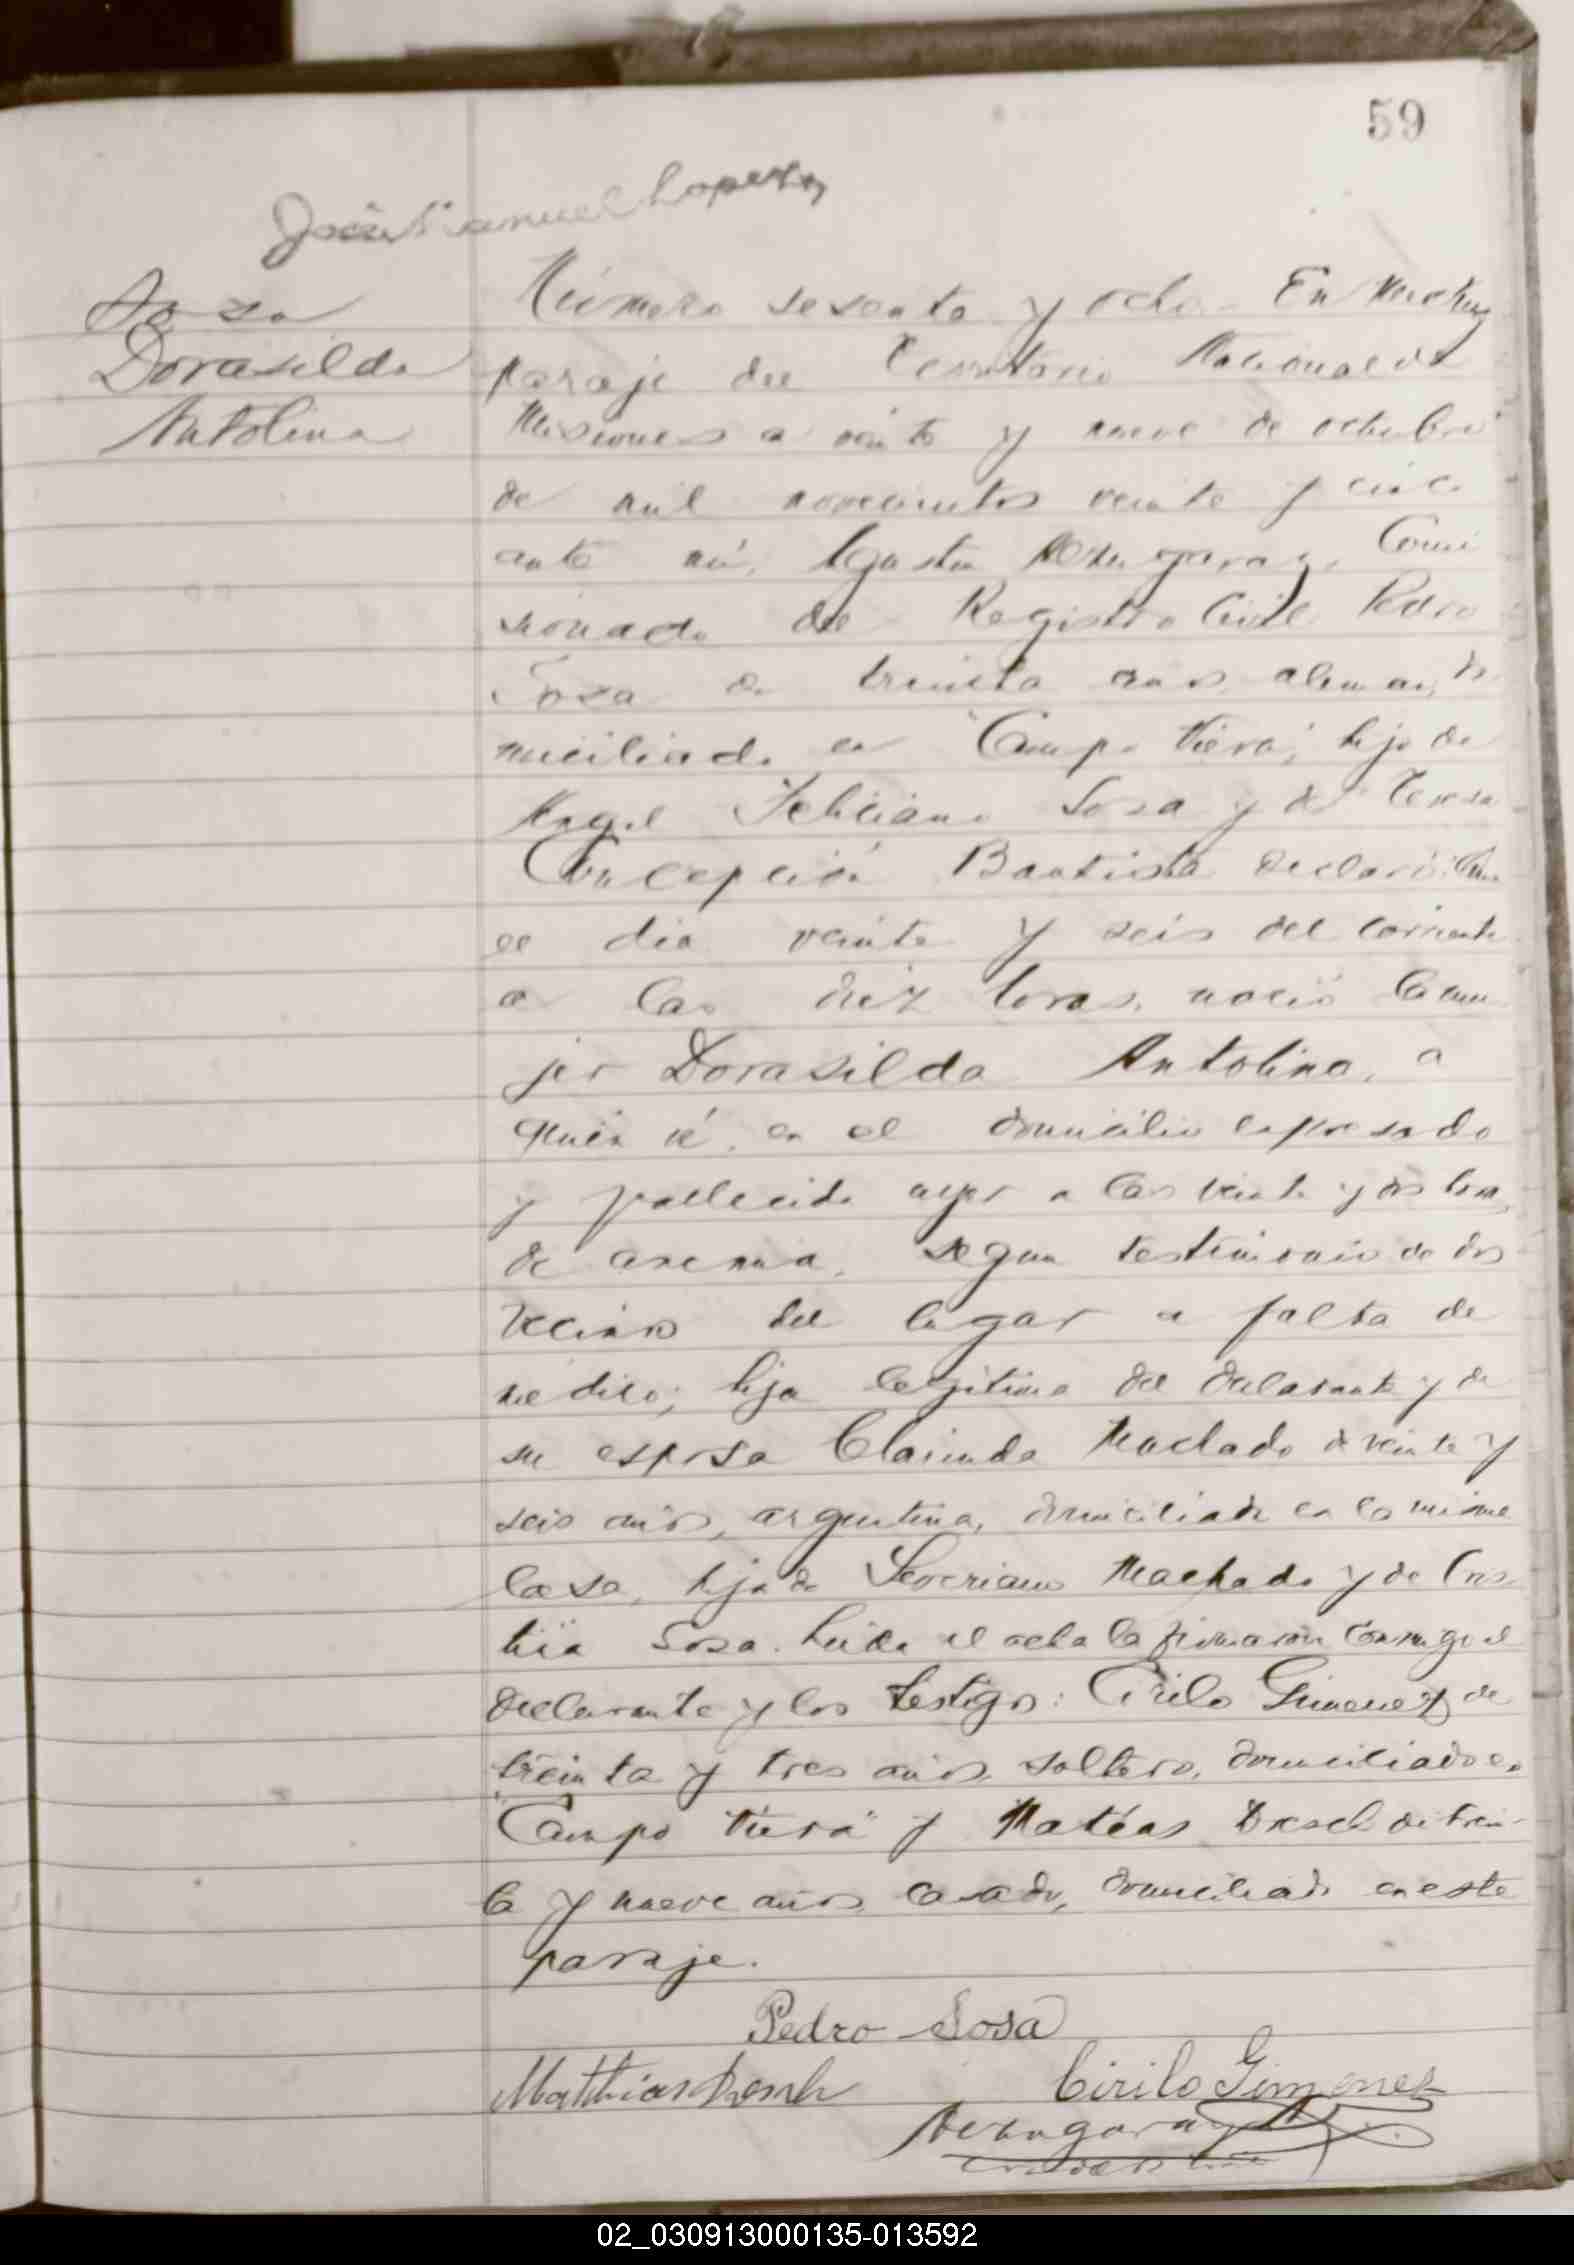 59
José Manuel Lopez
Sosa
Dorasilda
Antolina
Número sesenta y ocho. En
paraje del Territorio Nacional de
Misiones a veinte y nueve de octubre
de mil novecientos veinte y cinco
ante mí, Agustín Comi
sionado del Registro Civil, Pedro
Sosa de treinta años,
miciliado en "Campo Viera", hijo de
Angel Feliciano Sosa y de Teresa
Concepción Bautista declaró: Que
el dia veinte y seis del corriente
a las diez horas, nació la mu
jer Dorasilda Antolina, a
quien ví, en el domicilio expresado
y fallecida ayer a las veinte y dos horas,
de anemia, segun testimonio de dos
vecinos del lugar a falta de
médico; hija legitima del declarante y de
su esposa Clarinda Machado de veinte y
seis años, argentina, domiciliada en la misma
casa, hija de Severiano Machado y de
Sosa. Leida el acta la firmaron conmigo el
declarante y los testigos: Cirilo Gimenez de
treinta y tres años, soltero, domiciliado en
"Campo Viera" y Matías Dresch de trein-
ta y nueve años, casado, domiciliado en este
paraje.
Pedro Sosa
Matthias Dresch Cirilo Gimenez
02_030913000135-013592